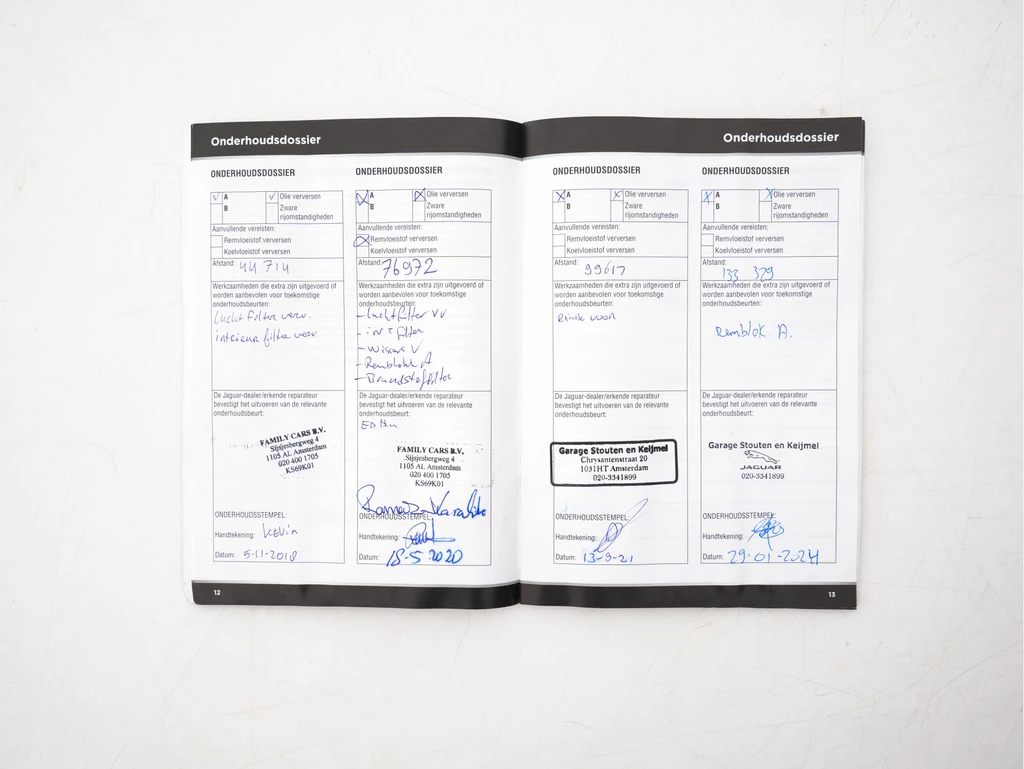 Onderhoudsdossier
ONDERHOUDSDOSSIER
A
Olie verversen
B
Zware
rijomstandigheden
Aanvullende vereisten:
Remvloeistof verversen
Koelvloeistof verversen
Afstand: 44 714
Werkzaamheden die extra zijn uitgevoerd of
worden aanbevolen voor toekomstige
onderhoudsbeurten:
Lucht Filter verv.
interieur filter verv
De Jaguar-dealer/erkende reparateur
bevestigt het uitvoeren van de relevante
onderhoudsbeurt:
FAMILY CARS B.V.
Sijsjesbergweg 4
1105 AL Amsterdam
020 400 1705
KS69K01
ONDERHOUDSSTEMPEL:
Handtekening: Kevin
Datum: 5-11-2018
ONDERHOUDSDOSSIER
A
Olie verversen
B
Zware
rijomstandigheden
Aanvullende vereisten:
Remvloeistof verversen
Koelvloeistof verversen
Afstand: 76972
Werkzaamheden die extra zijn uitgevoerd of
worden aanbevolen voor toekomstige
onderhoudsbeurten:
- Luchtfilter VV
- int filter
- Wissers V
- Remblokk A
- Brandstoffilter
De Jaguar-dealer/erkende reparateur
bevestigt het uitvoeren van de relevante
onderhoudsbeurt:
FAMILY CARS B.V.
Sijsjesbergweg 4
1105 AL Amsterdam
020 400 1705
KS69K01
ONDERHOUDSSTEMPEL:
Handtekening:
Datum: 18-5-2020
12
Onderhoudsdossier
ONDERHOUDSDOSSIER
A
Olie verversen
B
Zware
rijomstandigheden
Aanvullende vereisten:
Remvloeistof verversen
Koelvloeistof verversen
Afstand: 99617
Werkzaamheden die extra zijn uitgevoerd of
worden aanbevolen voor toekomstige
onderhoudsbeurten:
voor
De Jaguar-dealer/erkende reparateur
bevestigt het uitvoeren van de relevante
onderhoudsbeurt:
Garage Stouten en Keijmel
Chrysantenstraat 20
1031HT Amsterdam
020-3341899
ONDERHOUDSSTEMPEL:
Handtekening:
Datum: 13-9-21
ONDERHOUDSDOSSIER
A
Olie verversen
B
Zware
rijomstandigheden
Aanvullende vereisten:
Remvloeistof verversen
Koelvloeistof verversen
Afstand: 133 379
Werkzaamheden die extra zijn uitgevoerd of
worden aanbevolen voor toekomstige
onderhoudsbeurten:
Remblok A.
De Jaguar-dealer/erkende reparateur
bevestigt het uitvoeren van de relevante
onderhoudsbeurt:
Garage Stouten en Keijmel
JAGUAR
020-3341899
ONDERHOUDSSTEMPEL:
Handtekening:
Datum: 29-01-2024
13